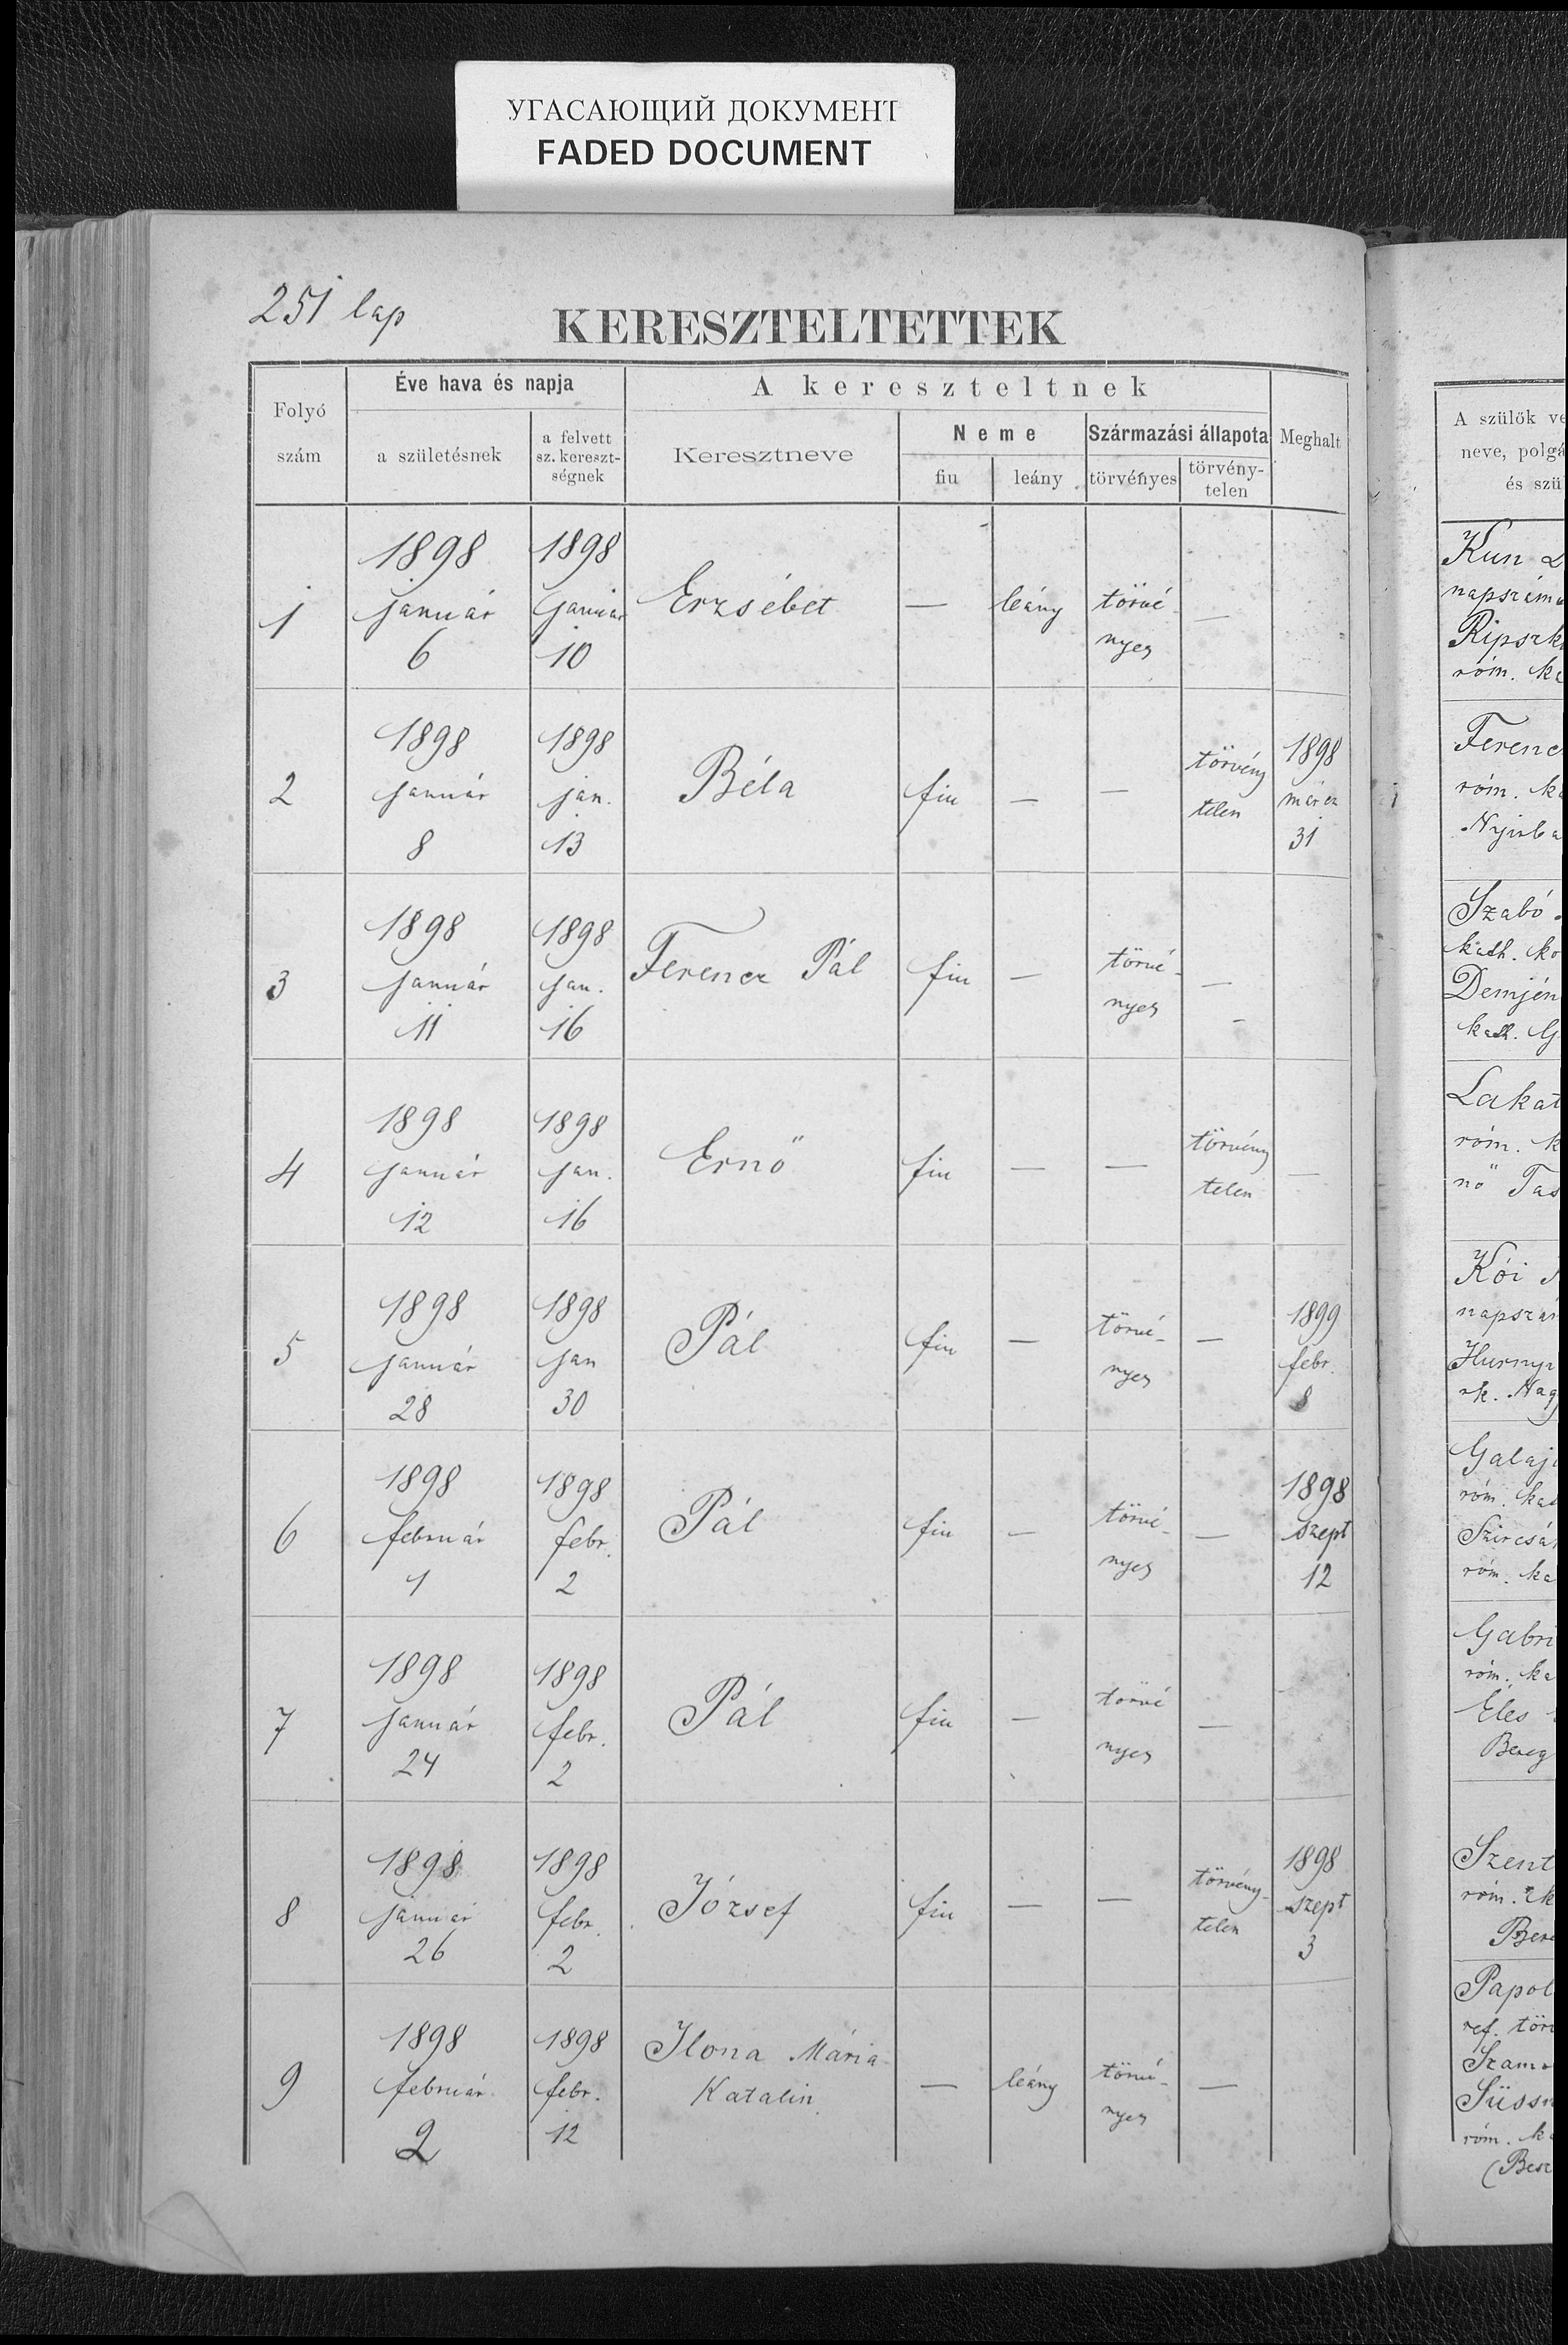 УГАСАЮЩИЙ ДОКУМЕНТ
FADED DOCUMENT
251 lap
KERESZTELTETTEK
Folyó szám
Éve hava és napja
a születésnek
a felvett sz. kereszt-ségnek
A kereszteltnek
Keresztneve
Neme
fiu
leány
Származási állapota
törvényes
törvény-telen
Meghalt
1
1898 január 6
1898 január 10
Erzsébet
—
leány
törvé-nyes
—
2
1898 január 8
1898 jan. 13
Béla
fiu
—
—
törvény telen
1898 márcz 31
3
1898 január 11
1898 jan. 16
Ferencz Pál
fiu
—
törvé-nyes
—
4
1898 január 12
1898 jan. 16
Ernő
fiu
—
—
törvény telen
—
5
1898 január 28
1898 jan 30
Pál
fiu
—
törvé-nyes
—
1899 febr. 8
6
1898 február 1
1898 febr. 2
Pál
fiu
—
törvé-nyes
—
1898 szept 12
7
1898 január 24
1898 febr. 2
Pál
fiu
—
törvé nyes
—
8
1898 január 26
1898 febr. 2
József
fiu
—
—
törvény-telen
1898 szept 3
9
1898 február 2
1898 febr. 12
Ilona Mária
Katalin
—
leány
törvé-nyes
—
A szülők ve
neve, polgá
és szü
Kun
napszám
Ripszk
róm. ka
Ferenc
róm. ka
Nyírba
Szabó
kath. ko
Demjén
kath. G
Lakat
róm. k
nő Tas
Kói
napszám
rk. Nag
Galaj
róm. kat
róm. ka
Gabri
róm. ka
Éles
Bereg
Szent
róm. k
Bere
Papol
ref. tör
Szamo
Süssn
róm. ka